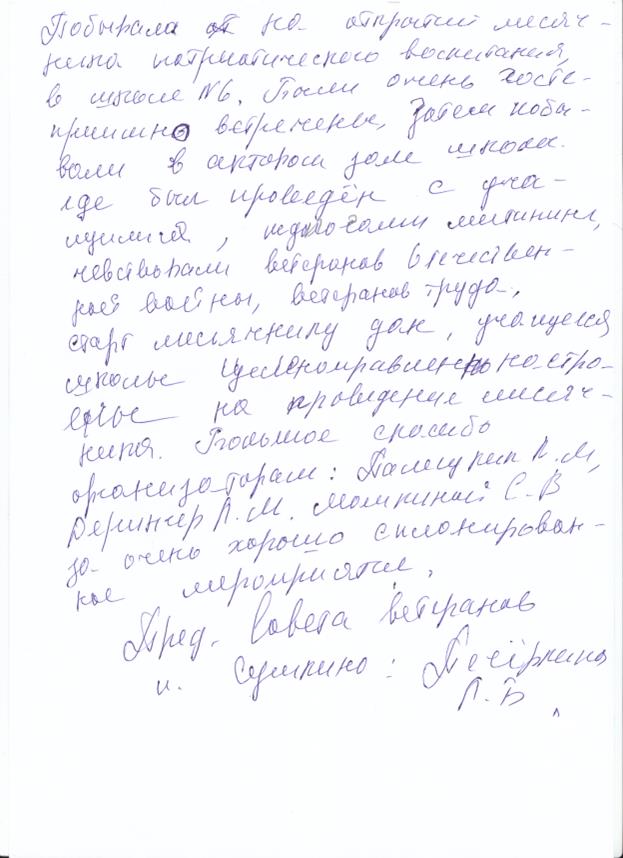 Побывала на открытии месяч-
ника патриатического воспитания,
в школе №6. Были очень госте-
приимно встречены, Затем побы-
вали в актовом зале школы.
где был проведён с уча-
щимися, педагогами митининг,
чевствовали ветеранов Отечествен-
ной войны, ветеранов труда,
старт месячнику дан, учащиеся
школы целенаправленно настро-
ены на проведение месяч-
ника. Большое спасибо
организаторам: Л.М,
Л.М. С.В
за очень хорошо спланирован-
ное мероприятие.
Пред. Совета ветеранов
п.
Л.Б